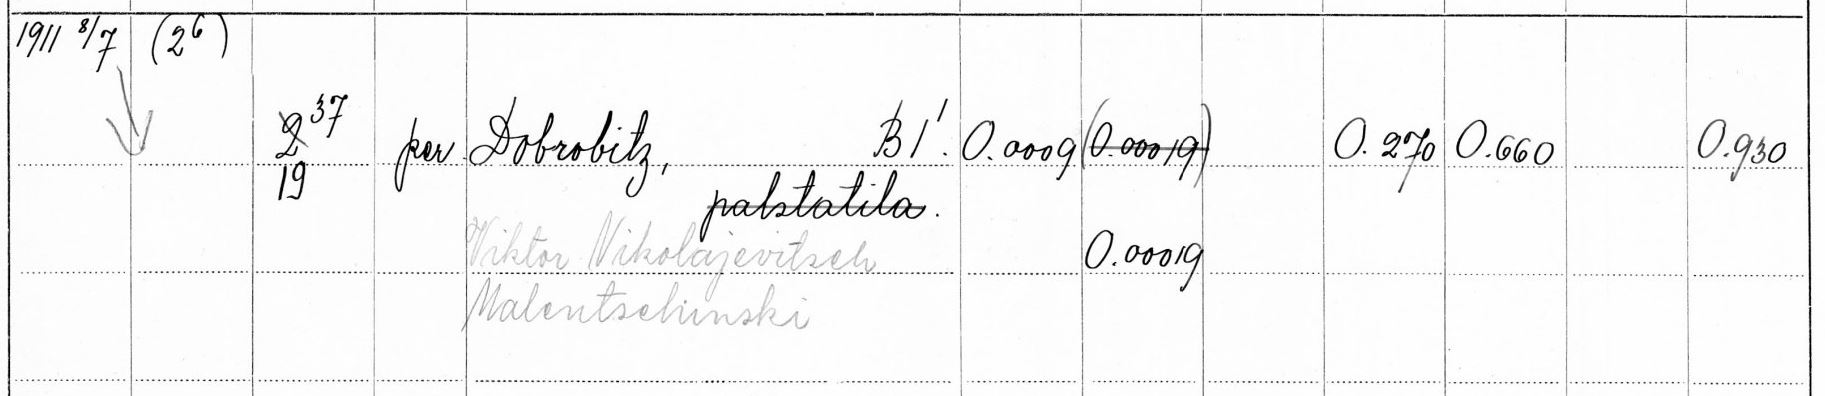 1911 8/7 (2⁶)
2 37 per Dobrobitz, B1'. 0.0009 (0.00019) 0.270 0.660 0.930
19
palstatila.
Viktor Nikolajevitsch 0.00019
Malentschinski